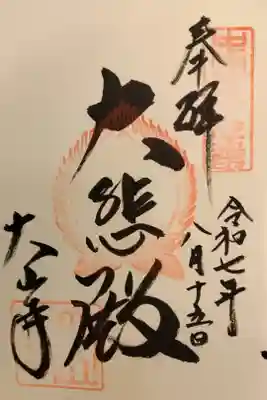 奉拝
令和七年
八月十五日
大悲殿
大山寺